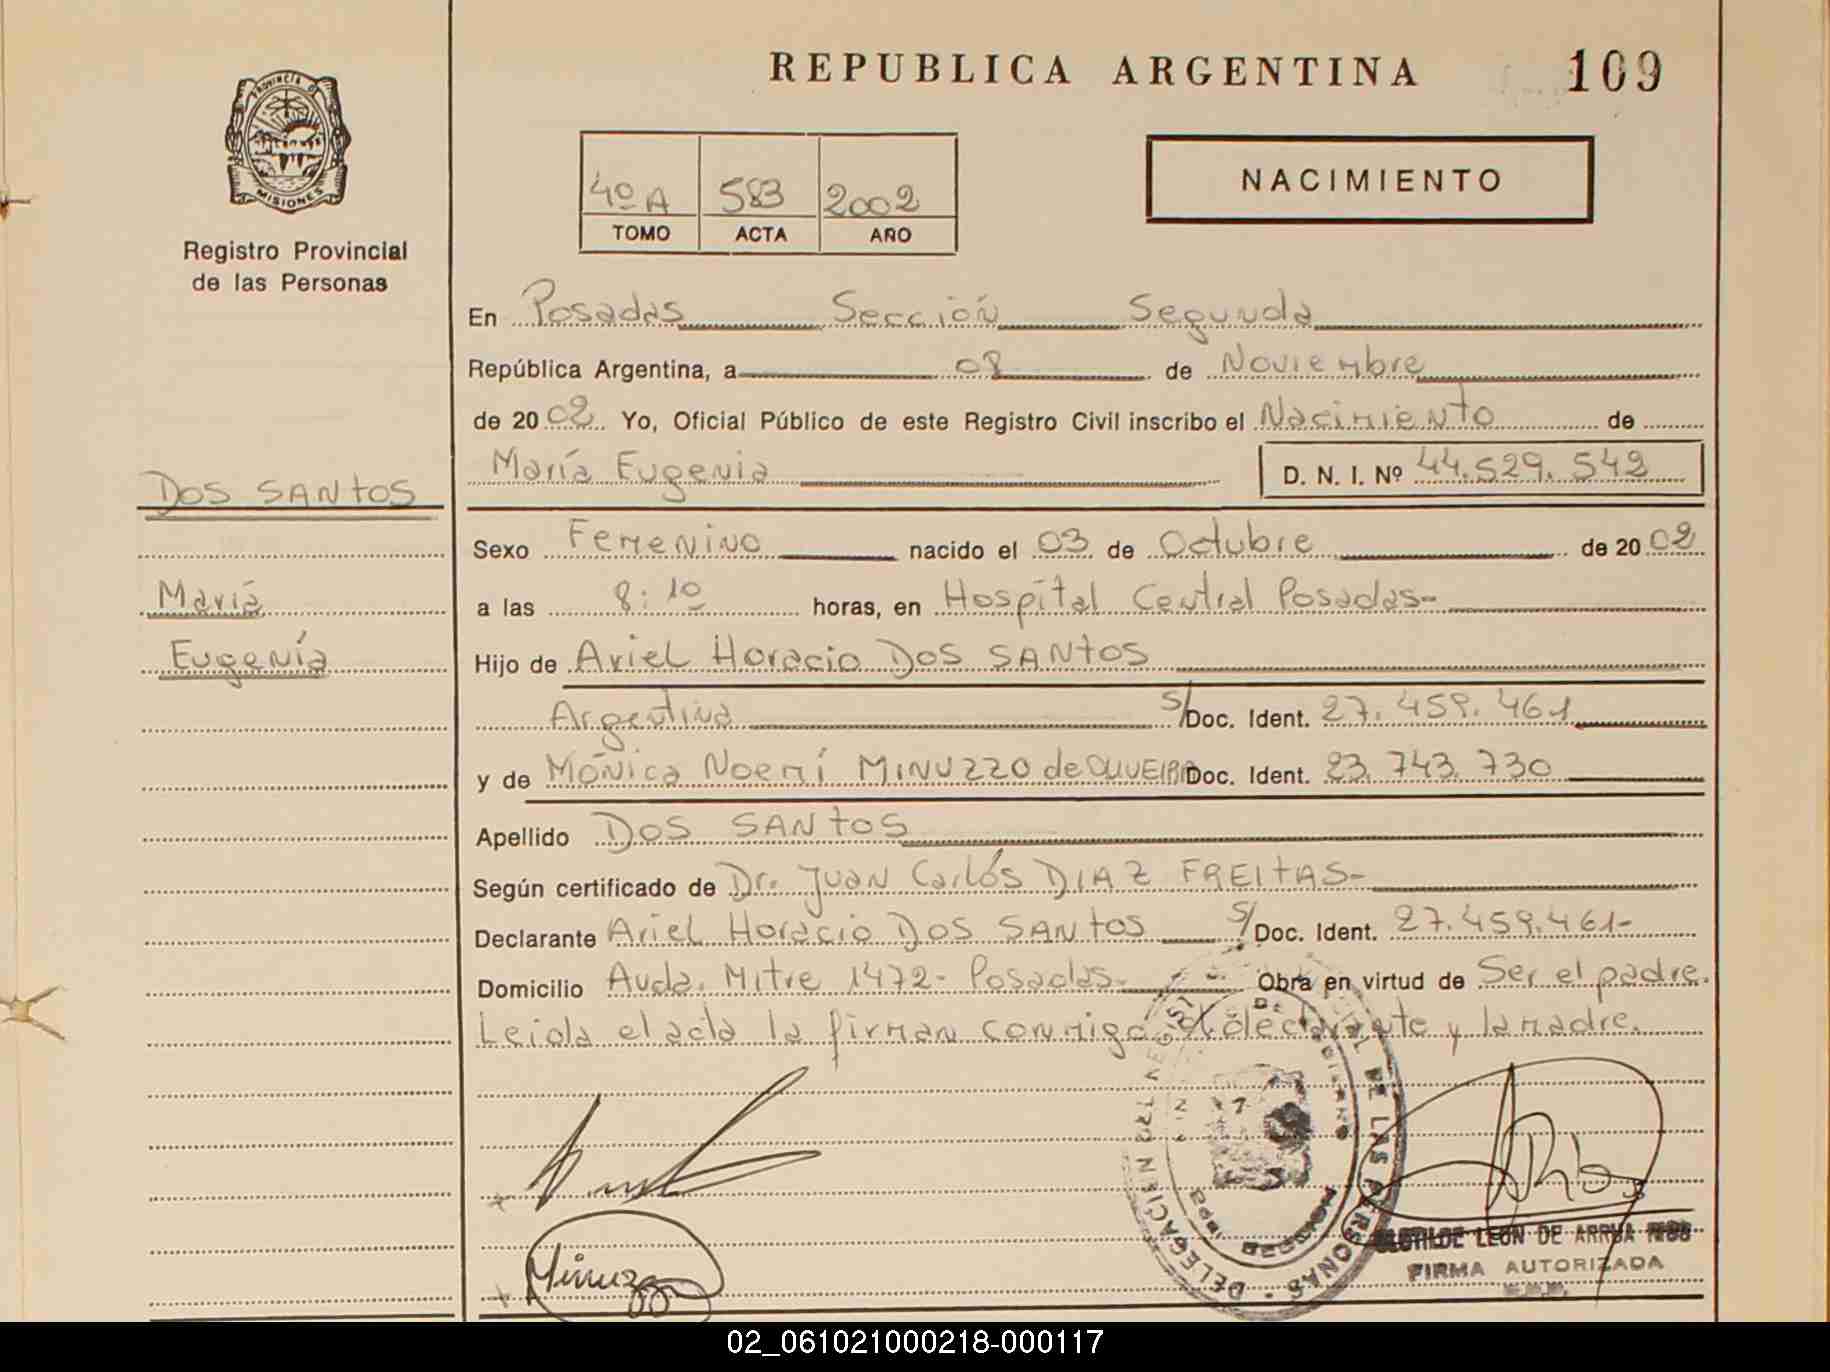 REPUBLICA ARGENTINA
109
PROVINCIA DE
MISIONES
Registro Provincial
de las Personas
NACIMIENTO
4º A 583 2002
TOMO ACTA AÑO
En Posadas Sección Segunda
República Argentina, a 08 de Noviembre
de 2002 Yo, Oficial Público de este Registro Civil inscribo el Nacimiento de
María Eugenia D. N. I. Nº 44.529.542
DOS SANTOS
María
Eugenia
Sexo Femenino nacido el 03 de Octubre de 2002
a las 8:10 horas, en Hospital Central Posadas-
Hijo de Ariel Horacio DOS SANTOS
Argentina S/Doc. Ident. 27.459.461
y de Mónica Noemí MINUZZO de OLIVEIRA Doc. Ident. 23.743.730
Apellido DOS SANTOS
Según certificado de Dr. Juan Carlos DIAZ FREITAS-
Declarante Ariel Horacio DOS SANTOS S/Doc. Ident. 27.459.461-
Domicilio Avda. Mitre 1472- Posadas- Obra en virtud de Ser el padre.
Leida el acta la firman conmigo el declarante y la madre.
DELEGACION DEL REGIST DE LAS PERSONAS
Minuzzo
CLOTILDE LEON DE ARRUA
FIRMA AUTORIZADA
02_061021000218-000117